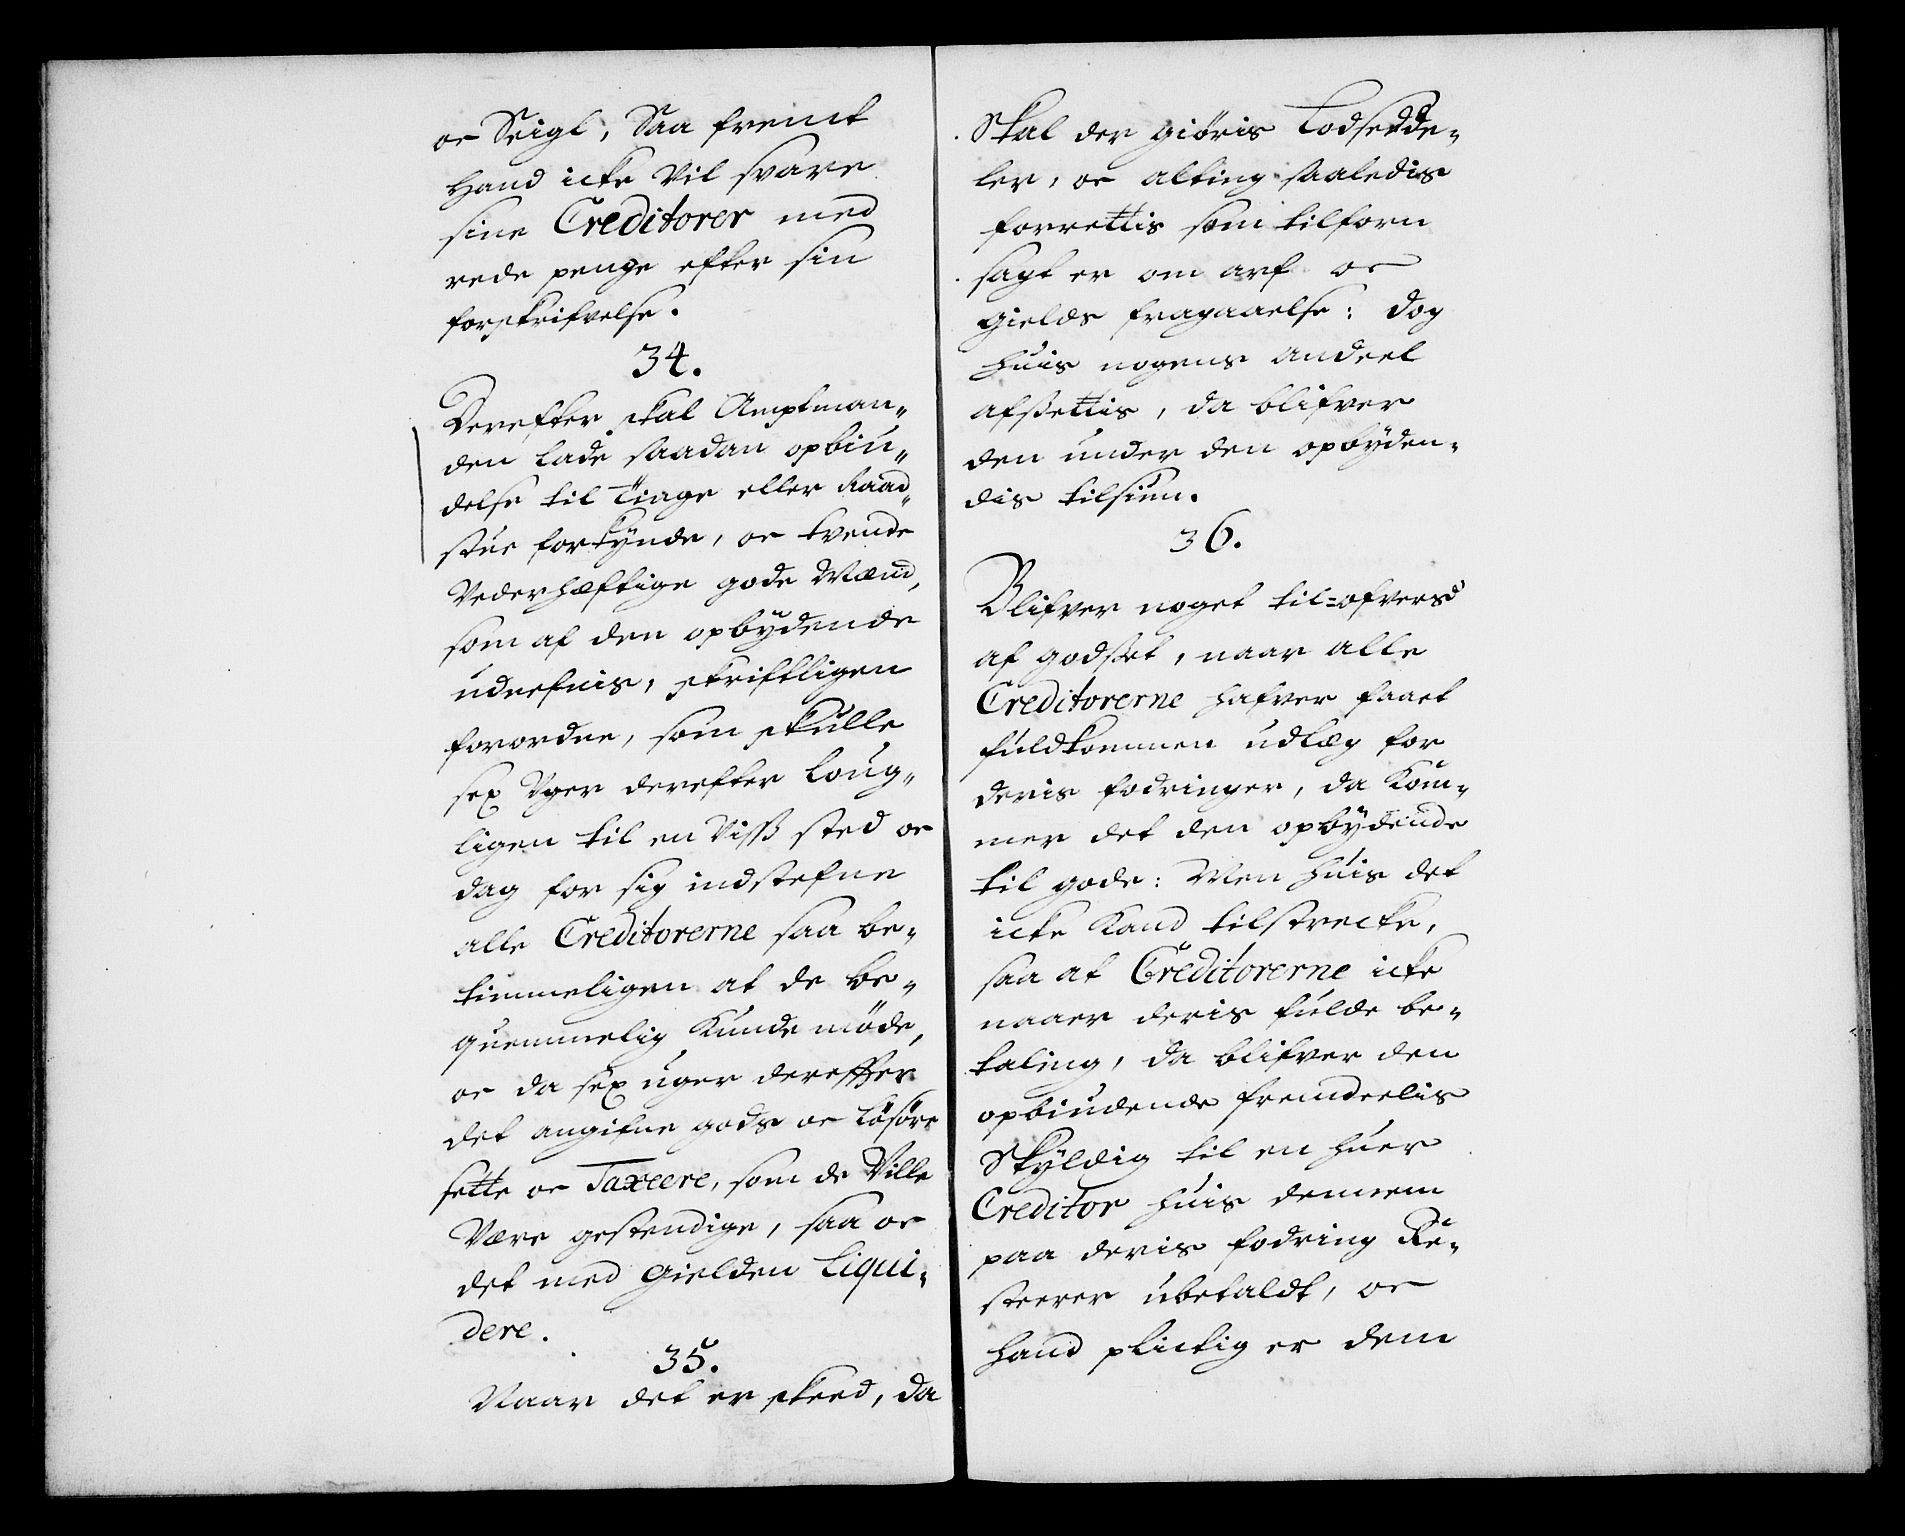 oc Seigl, Saa fremt
Hand icke Vil svare
sine Creditorer med
rede penge efter sin
forskrifvelse.
34.
Derefter skal Amptman„
den lade saadan opbiu„
delse til Tinge eller Raad„
stue forkÿnde, oc tvende
Vederhæftige gode Mænd,
som af den opbÿdende
udnefnis, skriftligen
forordne, som skulle
sex Uger derefter loug„
ligen til en Viss sted oc
dag for sig indstefne
alle Creditorerne saa be„
timmeligen at de be„
quemmelig Kunde møde,
oc da sex uger derefter
det angifne gods oc løsøre
sette oc Taxeere, som de Ville
Være gestendige, saa oc
det med Gielden Liqui„
dere.
35.
Naar det er skeed, da
Skal der giøris Lodsedde„
ler, oc alting saaledis
forrettis som tilforn
sagt er om arf oc
gields fragaaelse: dog
huis nogens andeel
afsettis, da blifver
den under den opbÿden„
dis tilsiun.
36.
Blifver noget til=ofvers
af godset, naar alle
Creditorerne hafver faaet
fuldkommen udlæg for
deris fodringer, da Kom„
mer det den opbÿdende
til gode: Men huis det
icke Kand tilstrecke,
saa at Creditorerne icke
naaer deris fulde be„
taling, da blifver den
opbiudende fremdeelis
Skÿldig til en huer
Creditor huis dennem
paa deris fodring Re„
steerer ubetaldt, oc
hand plictig er dem